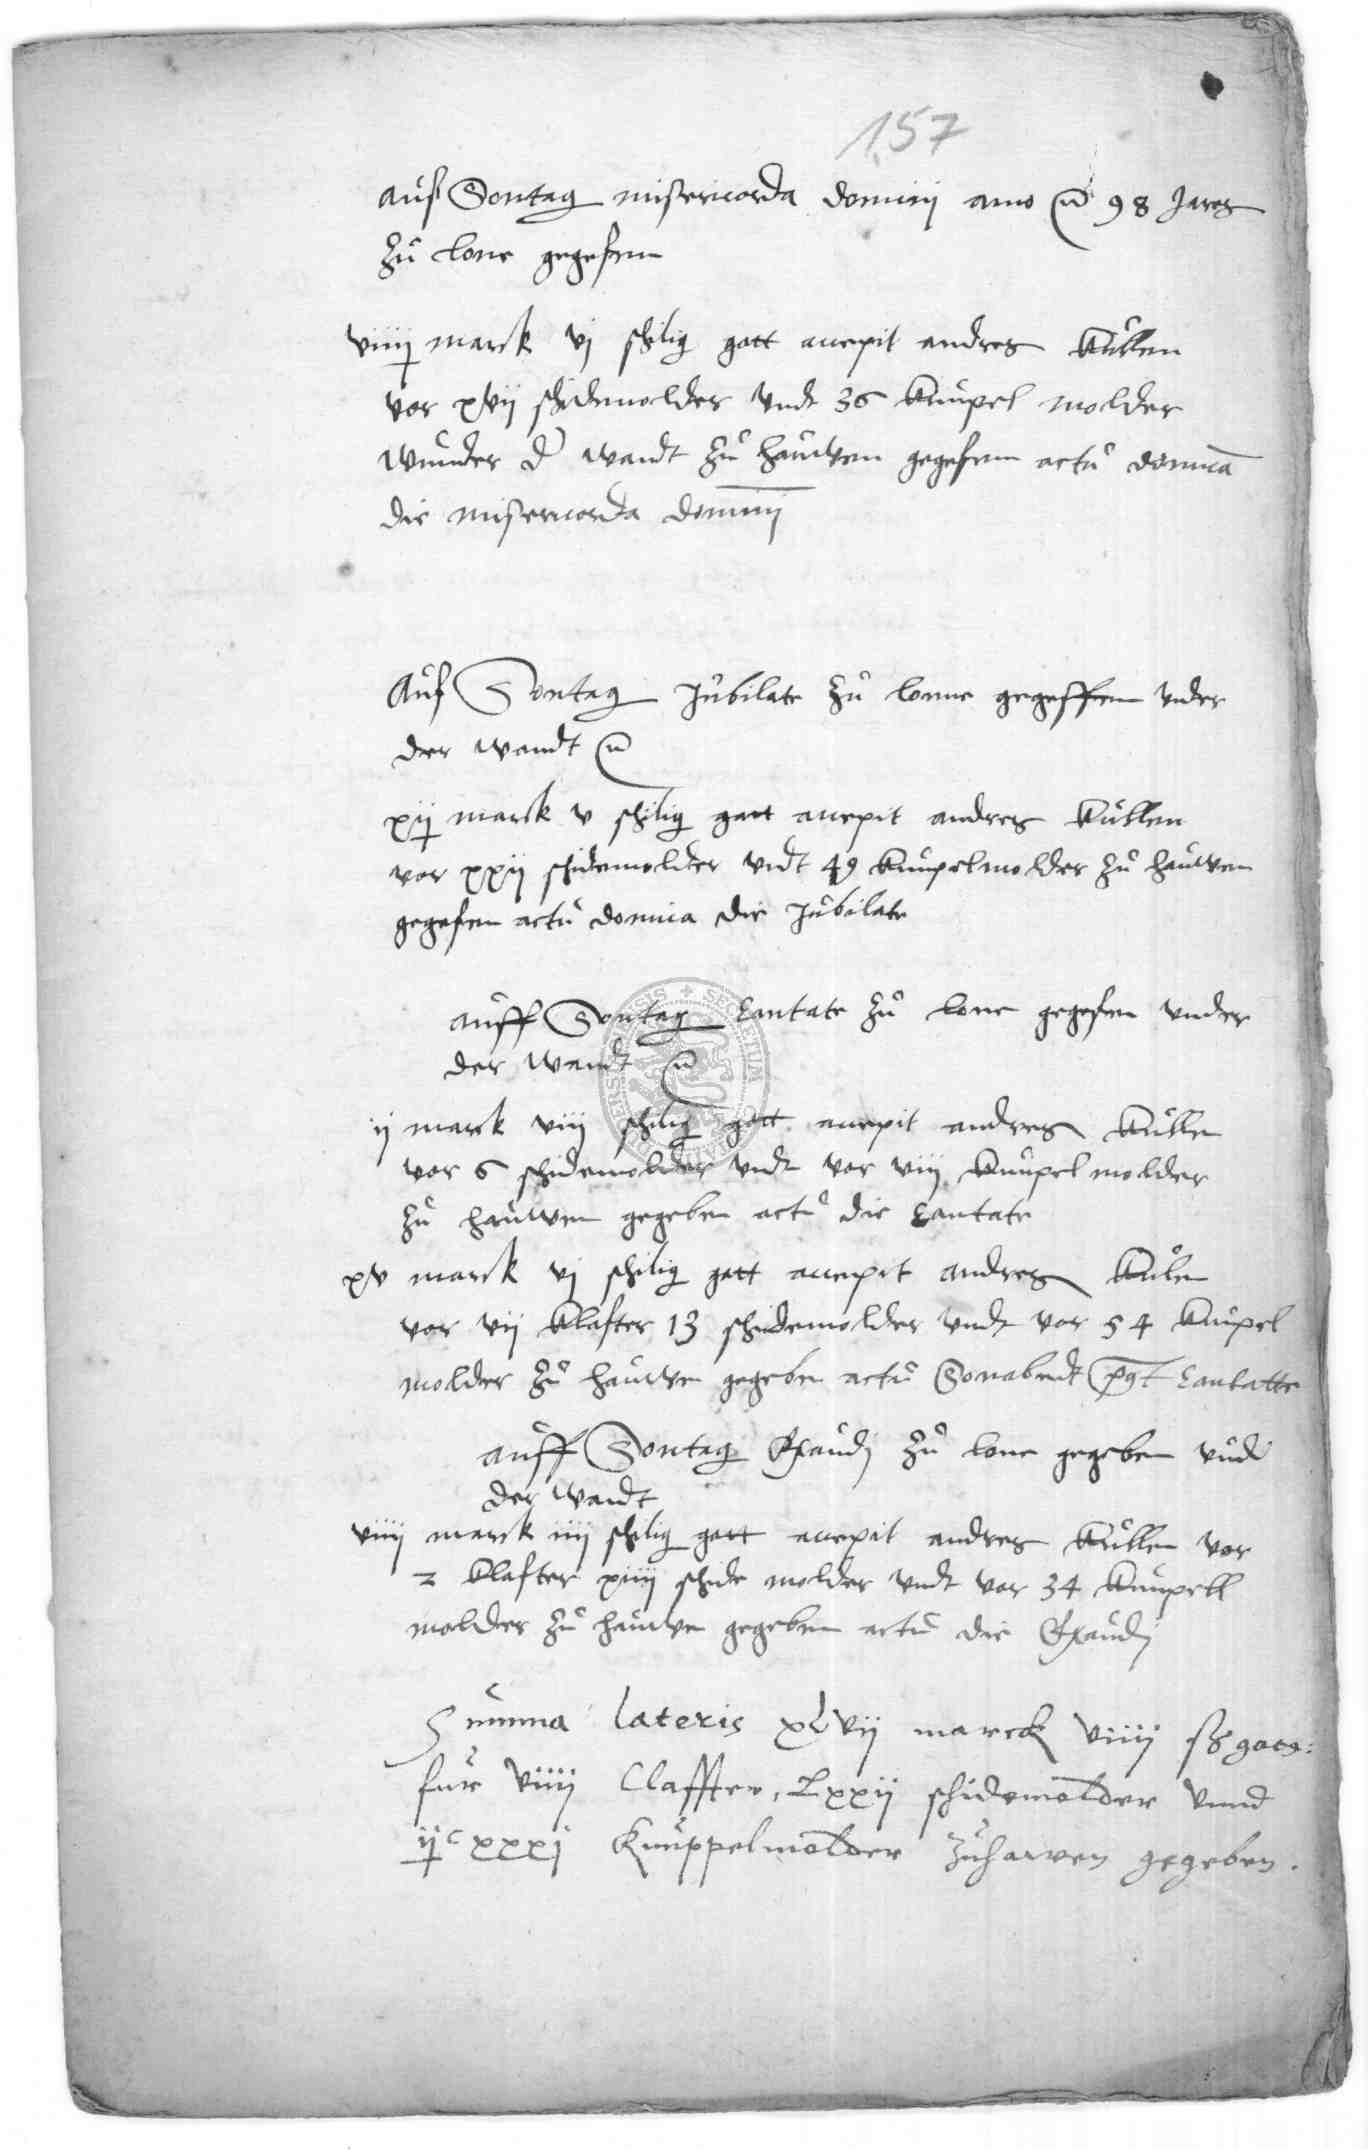 157
auf Sontag misericorda dominij anno 98 Jares
zu lone gegefen
viiij marck vj schilig gott accepit andres kullen
vor xvij schidemolder vndt 36 knupel molder
wunder d wandt zu hauwen gegefen actu dominica
die misericorda dominij
Auf Sontag Jubilate zu lonne gegeffen vnder
der wandt
xij marck v schilig gott accepit andres kullen
vor xxij schidemolder vndt 49 knupelmolder zu hauwen
gegefen actu dominica die Jubilate
auff Sontag Cantate zu lone gegefen vnder
der wandt
ij marck viij schilig gott accepit andres kulle
vor 6 schidemolder vndt vor viij knupel molder
zu hauwen gegeben actu die Cantate
xv marck vj schilig gott accepit andres kulen
vor vij klafter 13 schidemolder vndt vor 54 knupel
molder zu hauwen gegeben actu Sonabendt post Cantatte
auff Sontag Exaudj zu lone gegeben vnd
der wandt
viiij marck iiij schilig gott accepit andres kullen vor
2 klafter xiiij schide molder vndt vor 34 knupell
molder zu hauwe gegeben actu die Exaudj
Summa lateris xlvij marck viiij ß gorg:
fur viiij Claffter, Lxxij schidemolder vnnd
ijc xxxj Knuppelmolder zuhawen gegeben.